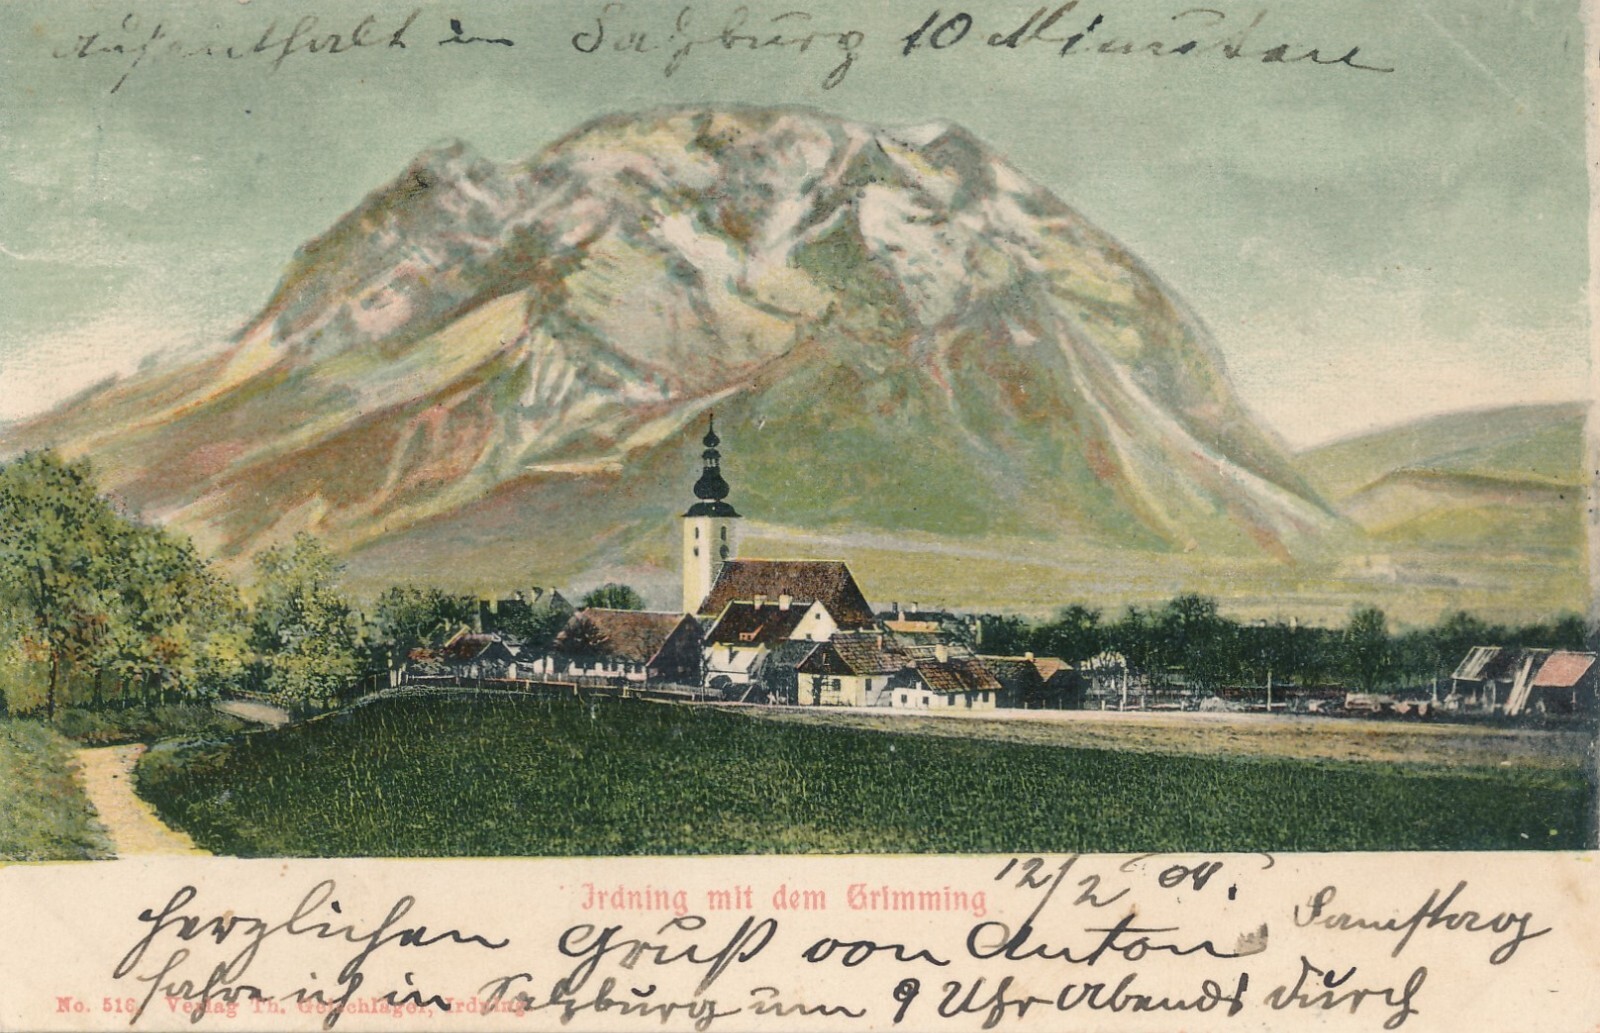 Aufenthalt in Salzburg 10 Minuten
Irdning mit dem Grimming
12/2 04.
herzlichen Gruß von Anton Samstag
fahre ich in Salzburg um 9 Uhr Abends durch
No. 516. Verlag Th. Irdning